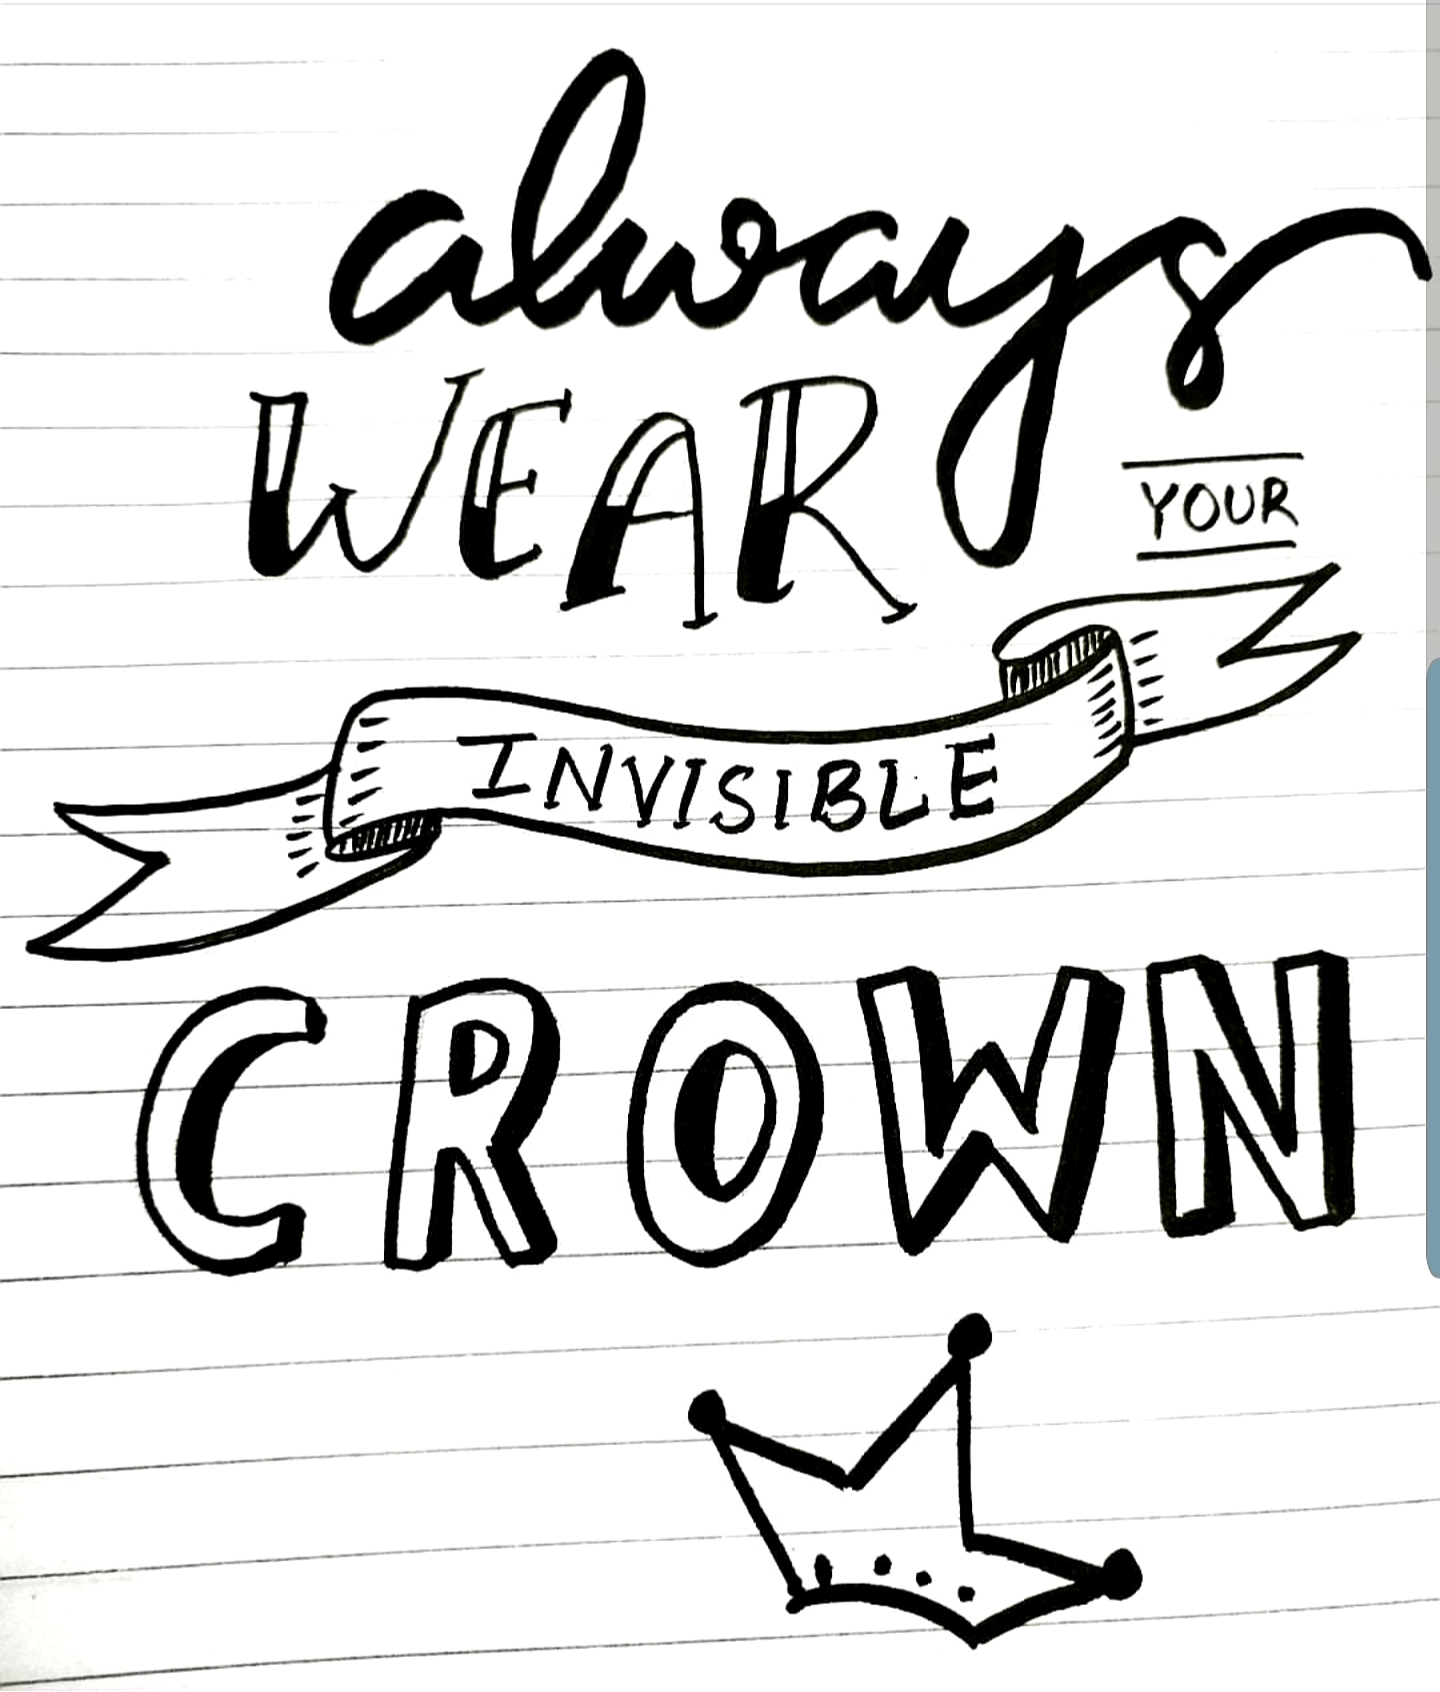 always
WEAR
YOUR
INVISIBLE
CROWN